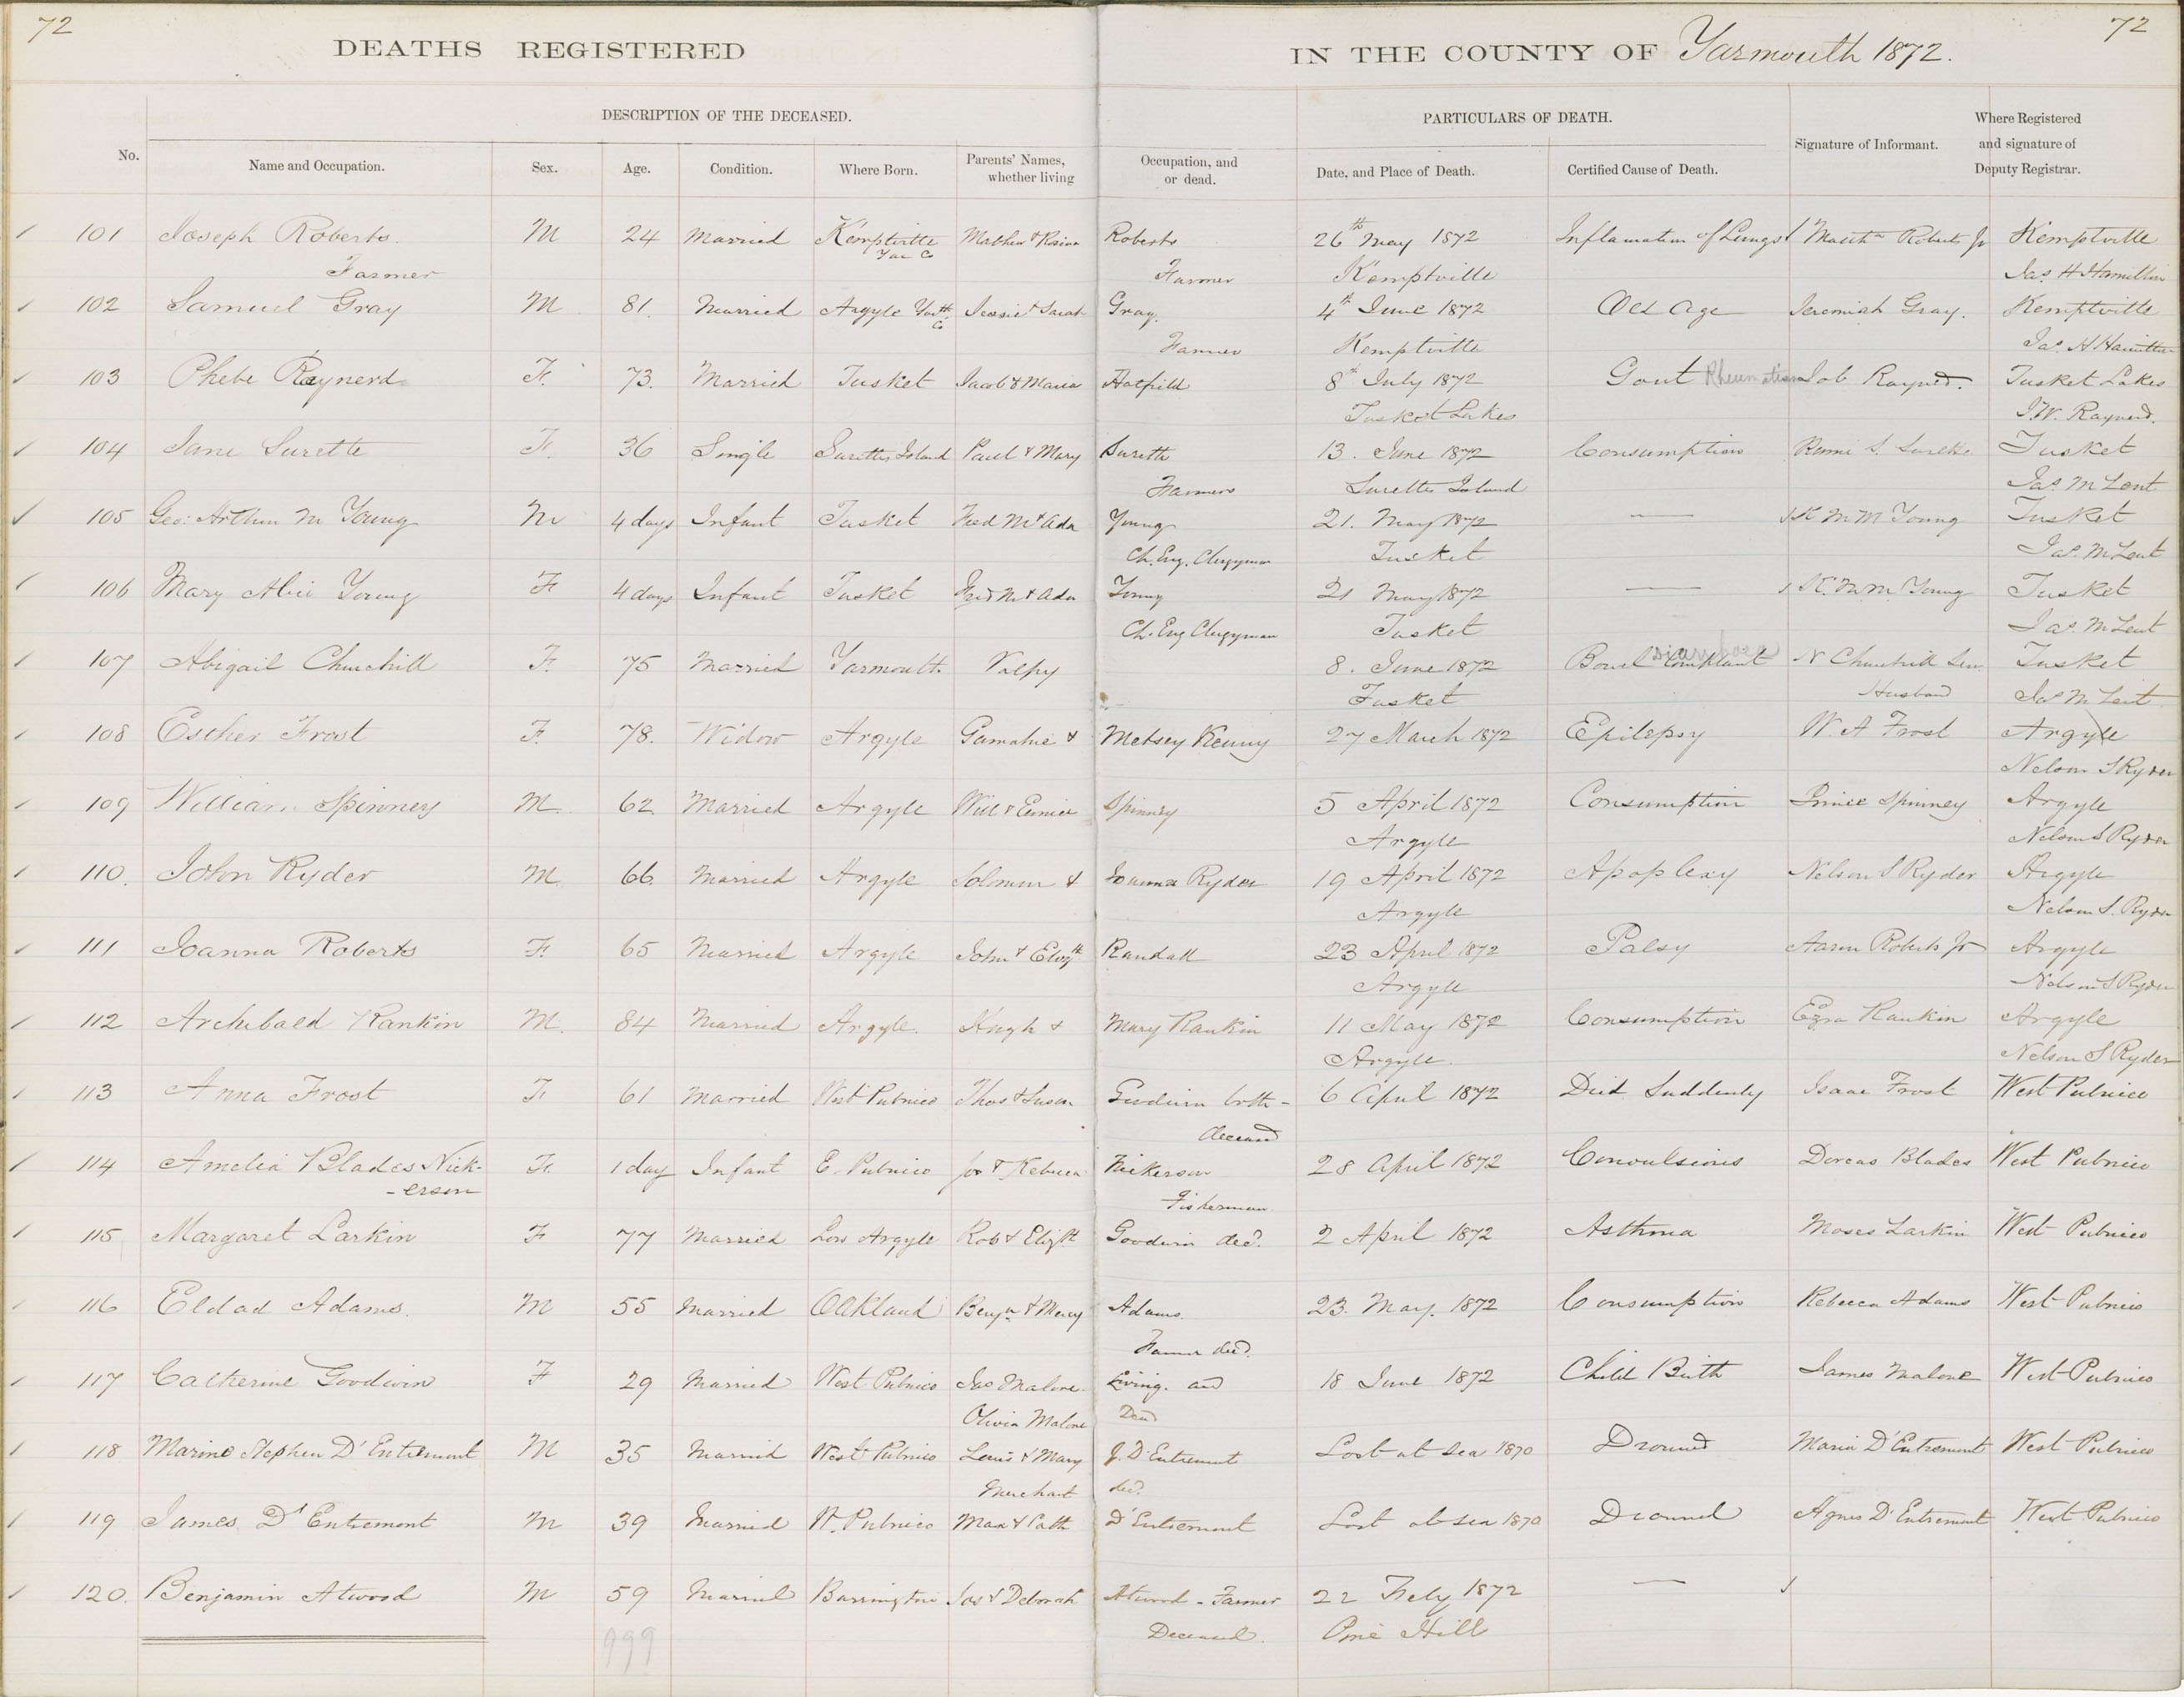 72
72
DEATHS REGISTERED IN THE COUNTY OF Yarmouth 1872.
DESCRIPTION OF THE DECEASED. PARTICULARS OF DEATH. Where Registered and signature of Deputy Registrar.
No. Name and Occupation. Sex. Age. Condition. Where Born. Parents' Names, whether living Occupation, and or dead. Date, and Place of Death. Certified Cause of Death. Signature of Informant.
101 Joseph Roberts. M 24 Married Kemptville Mathew & Roberts 26th May 1872 Inflamation of Lungs Roberts Jr Kemptville
Farmer Yar Co Farmer Kemptville Jas H Hamilton
102 Samuel Gray M 81. Married Argyle Yarth Co Jessie & Sarah Gray. 4th June 1872 Old Age Jeremiah Gray. Kemptville
Farmer Kemptville Jas. H Hamilton
103 Phebe Raynerd F. 73. Married Tusket Jacob & Maria Hatfield 8th July 1872 Gout Rheumatism Job Raynerd. Tusket Lakes
Tusket Lakes J.W. Raynerd.
104 Jane Surette F. 36 Single Surettes Island Paul & Mary Surette 13. June 1872 Consumption S. Surette Tusket
Farmer Surettes Island Jas. M Lent
105 Geo: Arthur M Young M 4 days Infant Tusket Fred M & Ada Young 21. May 1872 — M M Young Tusket
Ch. Eng. Clergyman Tusket Jas. M Lent
106 Mary Young F 4 days Infant Tusket Fred M & Ada Young 21 May 1872 — M. M. Young Tusket
Ch. Eng Clergyman Tusket Jas. M Lent
107 Abigail Churchill F. 75 Married Yarmouth Valpy 8. June 1872 Bowel Complaint diarrhoea N Churchill Sen. Tusket
Tusket Husband Jas M Lent
108 Esther Frost F. 78. Widow Argyle & Kenny 27 March 1872 Epilepsy W. A Frost Argyle
Nelson S Ryder
109 William Spinney M. 62. Married Argyle Will & Eunice Spinney 5 April 1872 Consumption Prince Spinney Argyle
Argyle Nelson S Ryder
110. John Ryder M 66. Married Argyle Solomon & Joanna Ryder 19 April 1872 Apoplexy Nelson S Ryder Argyle
Argyle Nelson S. Ryder
111 Joanna Roberts F. 65 Married Argyle John & Elizth Randall 23 April 1872 Palsy Aaron Roberts Jr Argyle
Argyle Nelson S Ryder
112 Archibald Rankin M. 84 Married Argyle. Hugh & Mary Rankin 11 May 1872 Consumption Ezra Rankin Argyle
Argyle. Nelson S Ryder
113 Anna Frost F. 61 Married West Pubnico Thos & Susan Goodwin both - 6 April 1872 Died Suddenly Isaac Frost West Pubnico
deceased
114 Amelia Blades Nick- F. 1 day Infant E. Pubnico Jos & Rebecca Nickerson 28 April 1872 Convulsions Dorcas Blades West Pubnico
-erson Fisherman
115 Margaret Larkin F 77 Married Low Argyle Rob & Elizth Goodwin decd. 2 April 1872 Asthma Moses Larkin West Pubnico
116 Eldad Adams. M 55 Married Oakland Benjn & Mercy Adams. 23. May. 1872 Consumption Rebecca Adams West Pubnico
Farmer decd.
117 Catherine Goodwin F 29 Married West Pubnico Jas Malone. Living. and 18 June 1872 Child Birth James Malone West Pubnico
Olivia Malone Dead
118 Marine Stephen D'Entremont M 35 Married West Pubnico Louis & Mary J. D'Entremont Lost at Sea 1870 Drowned Maria D'Entremont West Pubnico
Merchant decd.
119 James D'Entremont M 39 Married W. Pubnico Max & Cath D'Entremont Lost at sea 1870 Drowned Agnes D'Entremont West Pubnico
120. Benjamin Atwood M 59 Married Barrington Jos & Deborah Atwood - Farmer 22 Feby 1872 —
999 Deceased. Pine Hill